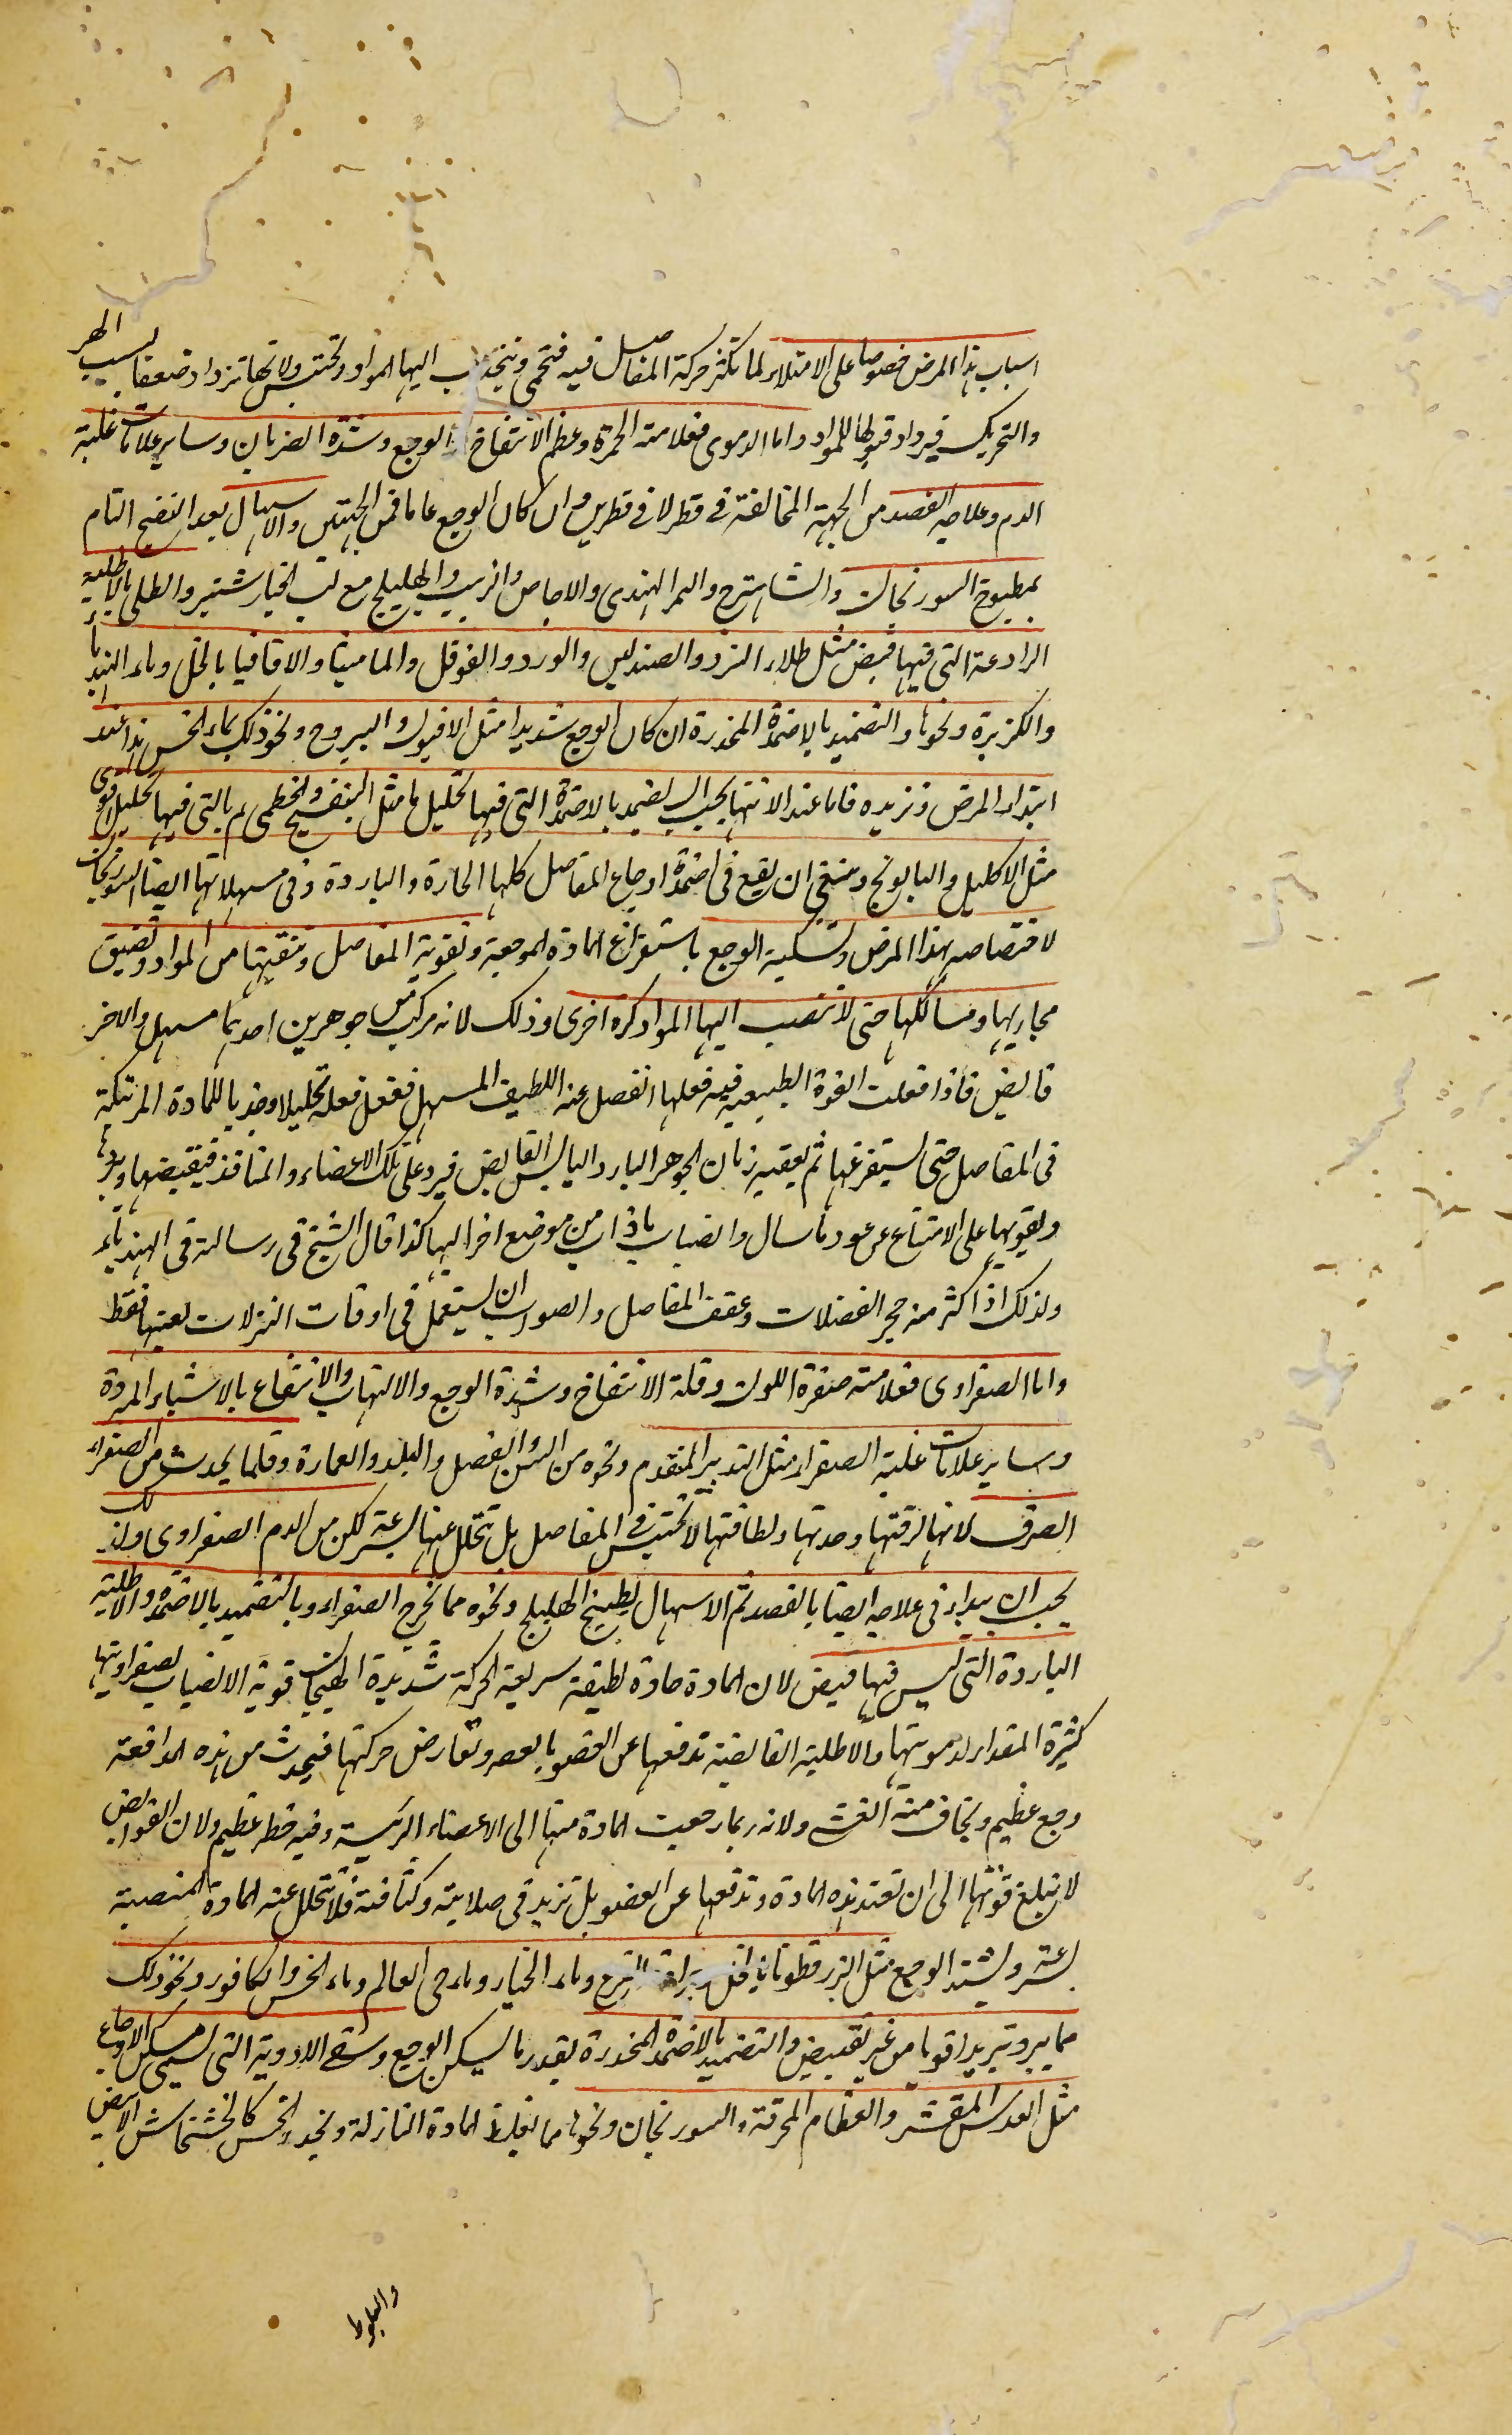 اسباب هذا المرض خصوصا على الامتلاء لما تكثر حركة المفاصل فيه فتحمى وينجذب اليها المواد وتحتبس ولانها تزداد ضعفا بسبب الهز
والتحريك فيزداد قبولها للمواد واما الدموى فعلامته الحمرة وعظم الانتفاخ والوجع وشدة الضربان وساير علامات غلبة
الدم وعلاجه الفصد من الجهة المخالفة فى قطر لا فى قطرين وان كان الوجع عاما فمن الجهتين والاسهال بعد النضج التام
بمطبوخ السورنجان والشاهترج والتمر الهندى والاجاص والزبيب والهليلج مع لب الخيارشنبر والطلى بالاطلية
الرادعة التى فيها قبض مثل طلاء النزد والصندلين والورد والفوفل والماميثا والاقاقيا بالخل وماء الهندباء
والكزبرة ونحوها والتضميد بالاضمدة المخدرة ان كان الوجع شديدا مثل الافيون واليبروح ونحو ذلك بماء الخس هذا عند
ابتداء المرض وتزيده فاما عند الانتها يجب ان يضمد بالاضمدة التى فيها تحليل ما مثل البنفسج والخطمى ثم بالتى فيها تحليل اقوى
مثل الاكليل والبابونج وينبغى ان يقع فى اضمدة اوجاع المفاصل كلها الحارة والباردة وفى مسهلاتها ايضا السورنجان
لاختصاصه بهذا المرض وتسكينه الوجع باستفراغ المادة الموجعة وتقوية المفاصل وتنقيتها من المواد وتضييق
مجاريها ومسالكها حتى لا تنصب اليها المواد كرة اخرى وذلك لانه مركب من جوهرين احدهما مسهل والاخر
قابض فاذا فعلت القوة الطبيعية فيه فعلها انفصل عنه اللطيف المسهل ففعل فعله تحليلا وجذبا للمادة المرتبكة
فى المفاصل حتى يستفرغها ثم يعقبه زمان الجوهر البارد اليابس القابض فيرد على تلك الاعضاء والمنافذ فيقبضها ويبردها
ويقويها على الامتناع عن عود ما سال وانصباب ما ذاب من موضع اخر اليها كذا قال الشيخ فى رسالته فى الهندباء
ولذلك اذا اكثر منه حجر الفضلات وعقف المفاصل والصواب ان يستعمل فى اوقات النزلات بعينها فقط
واما الصفراوى فعلامته صفرة اللون وقلة الانتفاخ وشدة الوجع والالتهاب والانتفاع بالاشياء المبردة
وساير علامات غلبة الصفراء مثل التدبير المتقدم ونحوه من السن والفصل والبلد والعمارة وقلما يحدث من الصفراء
الصرف لانها لرقتها وحدتها ولطافتها لا تحتبس فى المفاصل بل تتحلل عنها بسرعة لكن من الدم الصفراوى ولذلك
يجب ان يبداء فى علاجه ايضا بالفصد ثم الاسهال بطبيخ الهليلج ونحوه مما يخرج الصفراء وبالتضميد بالاضمدة والاطلية
الباردة التى ليس فيها قبض لان المادة حادة لطيفة سريعة الحركة شديدة الهيجان قوية الانصباب لصفراويتها
كثيرة المقدار لدمويتها والاطلية القابضة تدفعها عن العضو بالعصر وتعارض حركتها فيحدث من هذه المدافعة
وجع عظيم ويخاف منه الغشى ولانه ربما رجعت المادة منها الى الاعضاء الرئيسة وفيه خطر عظيم ولان القوابض
لا تبلغ قوتها الى ان تعتد بهذه المادة وتدفعها عن العضو بل تزيد فى صلابته وكثافته فلا تتحلل عنه المادة المنصبة
بسرعة ويشتد الوجع مثل البزرقطونا بالخل وجرادة القرع وماء الخيار وماء حى العالم وماء الخس والكافور ونحو ذلك
مما يبرد تبريدا قويا من غير تقبيض والتضميد بالاضمدة المخدرة بقدر ما يسكن الوجع وسقى الادوية التى تسمى مسكن الاوجاع
مثل العدس المقشر والعظام المحرقة والسورنجان ونحوها مما يغلظ المادة النازلة ويخدر الحس كالخشخاش الابيض
والبلوط